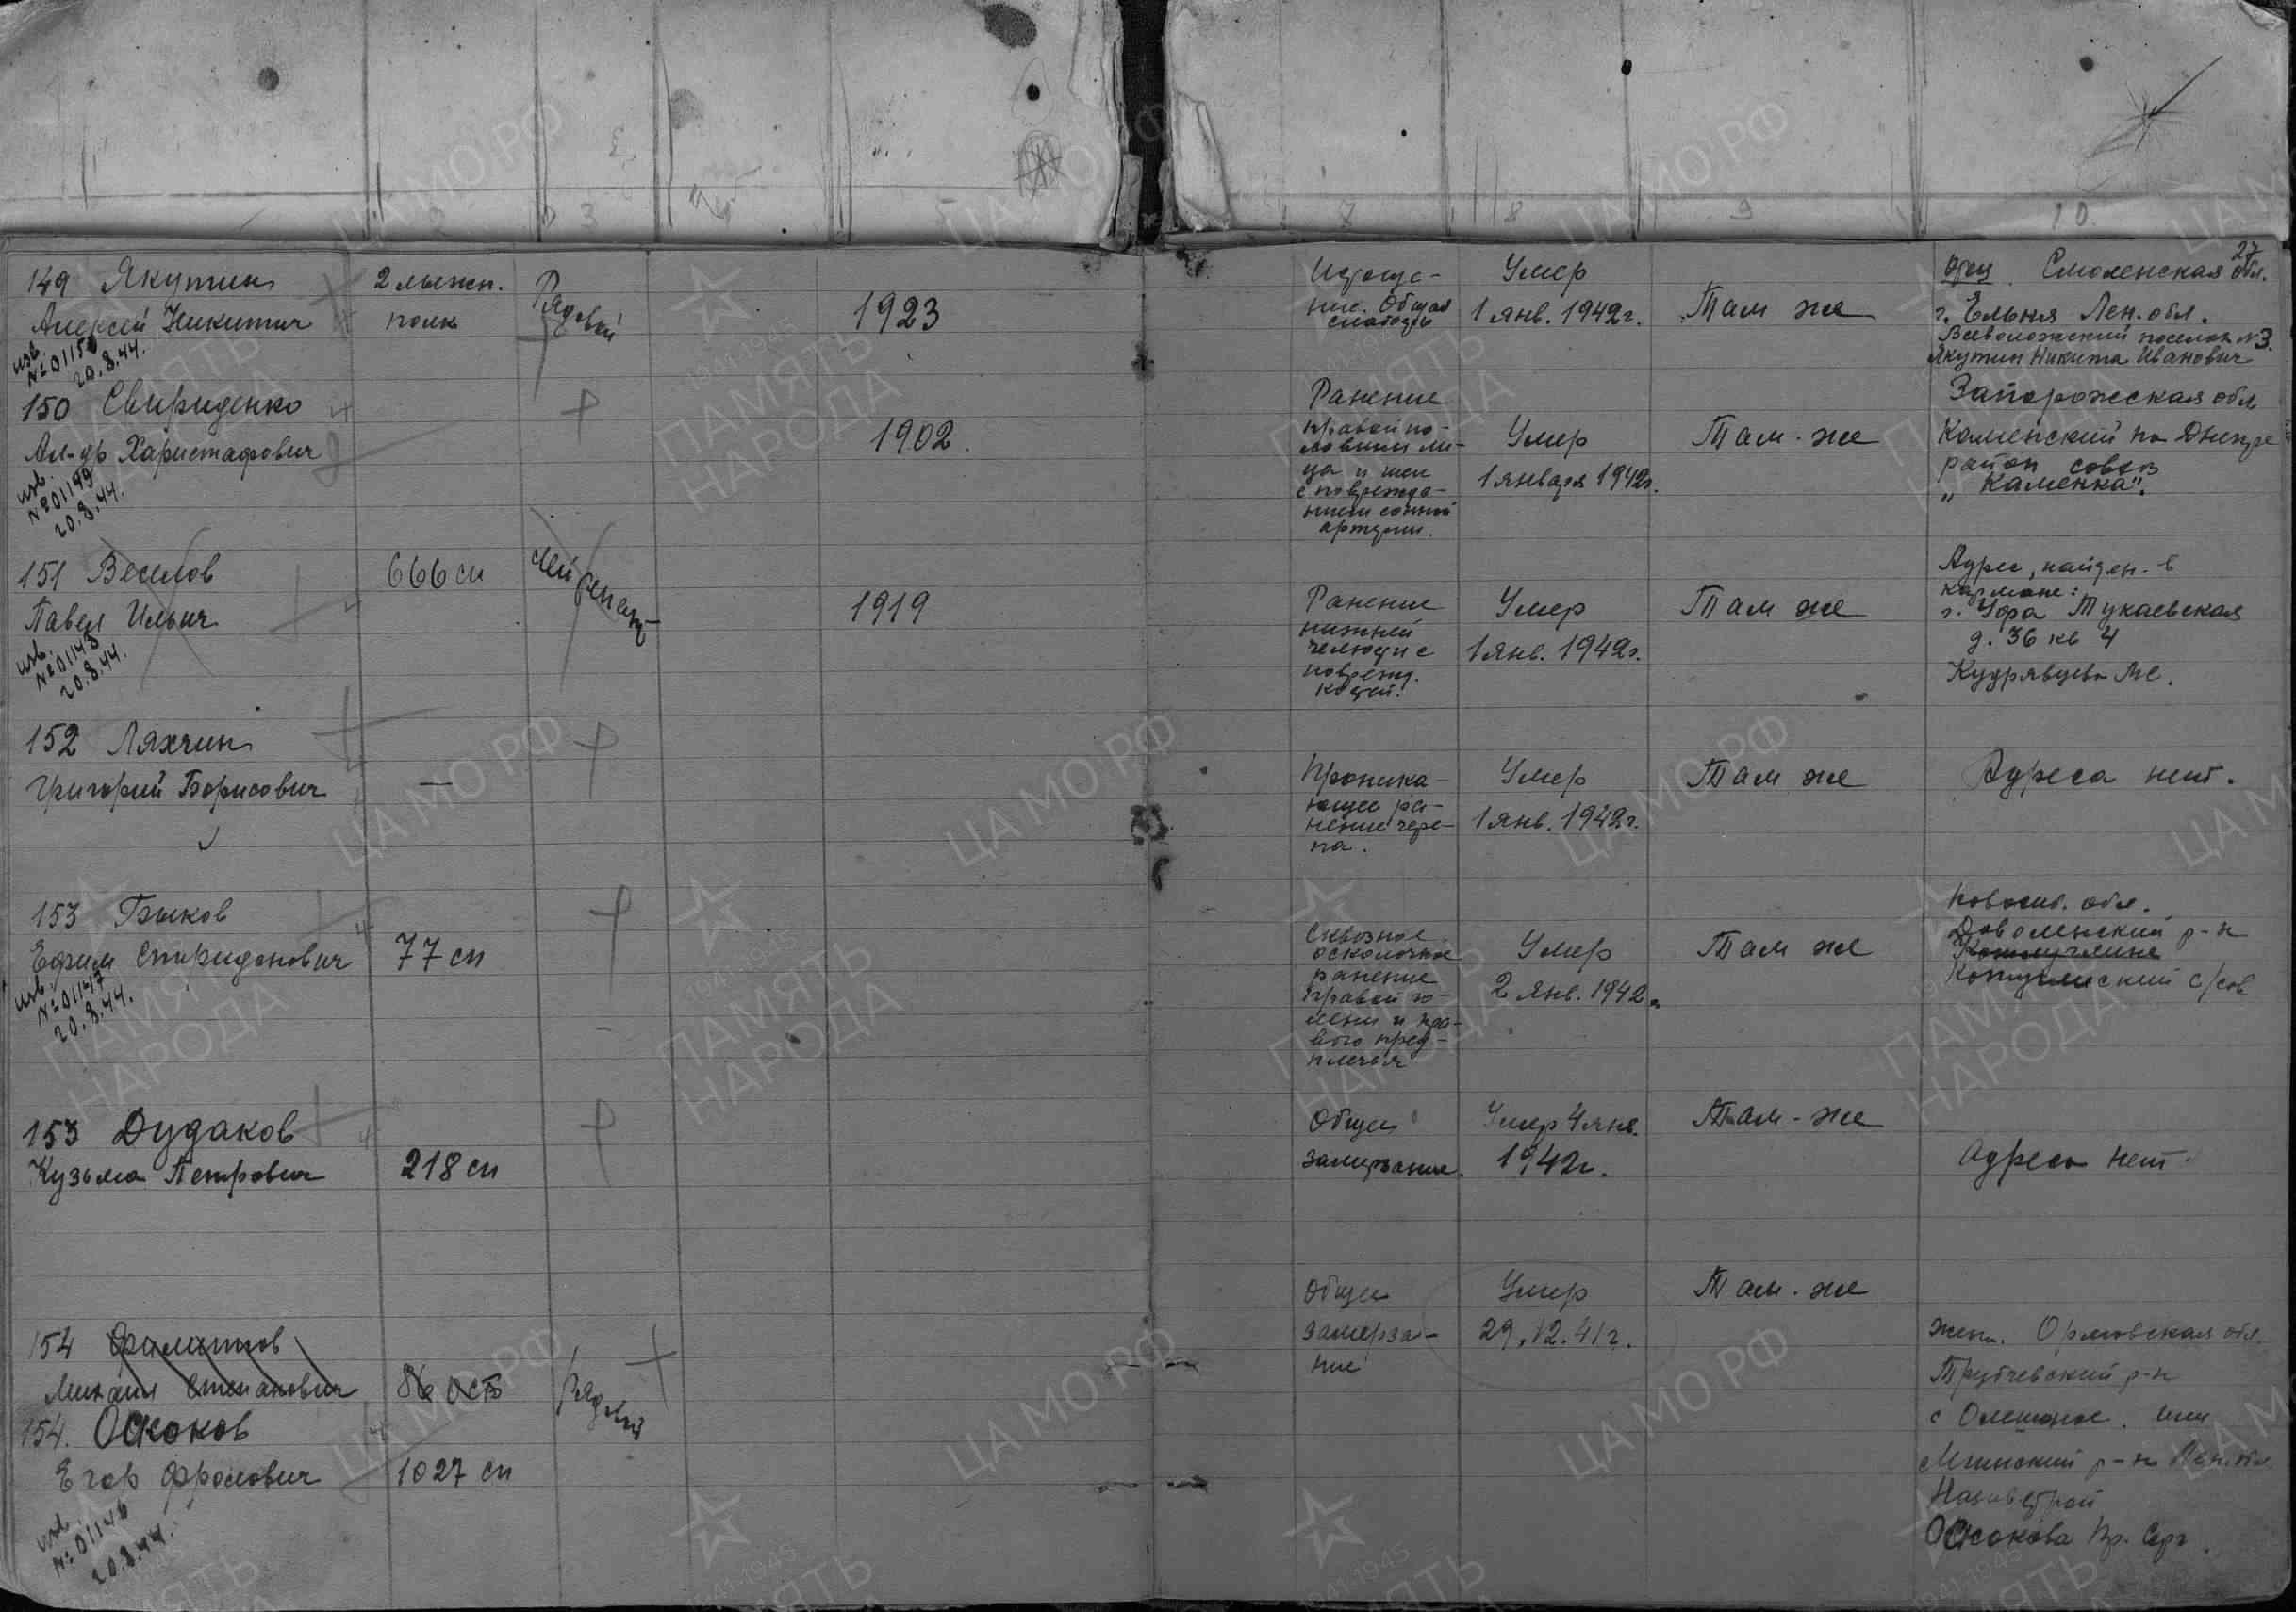 2 3 4 5 7 8 9 10.
27
149 Якутин
Алексей Никитич
изв.
№ 01150
20.8.44.
2 лыжн.
полк
Рядовой
1923
Истоще-
ние. Общая
слабость
Умер
1 янв. 1942г.
Там же
отец Смоленская обл.
г. Ельня Лен. обл.
Всеволожский поселок №3.
Якутин Никита Иванович
150 Свириденко
Ал-др Харистафович
изв.
№ 01149
20.8.44.
1902.
Ранение
правой по-
ловины ли-
ца и шеи
с поврежде-
нием сонной
артерии.
Умер
1 января 1942г.
Там-же
Запорожская обл
Каменский на Днепре
район совхоз
"Каменка".
151 Веселов
Павел Ильич
изв.
№ 01148
20.8.44.
666 сп
лейтенант
1919
Ранение
нижней
челюсти с
поврежд.
костей.
Умер
1 янв. 1942г.
Там же
Адрес, найден. в
кармане:
г. Уфа Тукаевская
д. 36 кв 4
Кудрявцева М.
152 Ляхчин
Григорий Борисович
—
Проника-
ющее ра-
нение чере-
па.
Умер
1 янв. 1942г.
Там же
Адреса нет.
153 Быков
Ефим Спиридонович
изв.
№ 01147
20.8.44.
77 сп
Сквозное
осколочное
ранение
правой го-
лени и пра-
вого пред-
плечья
Умер
2 янв. 1942г.
Там же
Новосиб. обл.
Доволенский р-н
Комуглинский с/сов
153 Дудаков
Кузьма Петрович
218 сп
Общее
замерзание.
Умер 4 янв.
1942г.
Там-же
Адреса нет
154 Филиппов
Михаил Степанович
86 ОСБ
154. Осоков
Егор Фролович
изв.
№ 01146
20.8.44.
1027 сп
рядовой
Общее
замерза-
ние
Умер
29.12.41г.
Там-же
жена. Орловская обл.
Трубчевский р-н
с Олешное. или
Мгинский р-н Лен. обл
Осокова Пр. Серг.
ЦА МО РФ
ПАМЯТЬ
НАРОДА
1941-1945